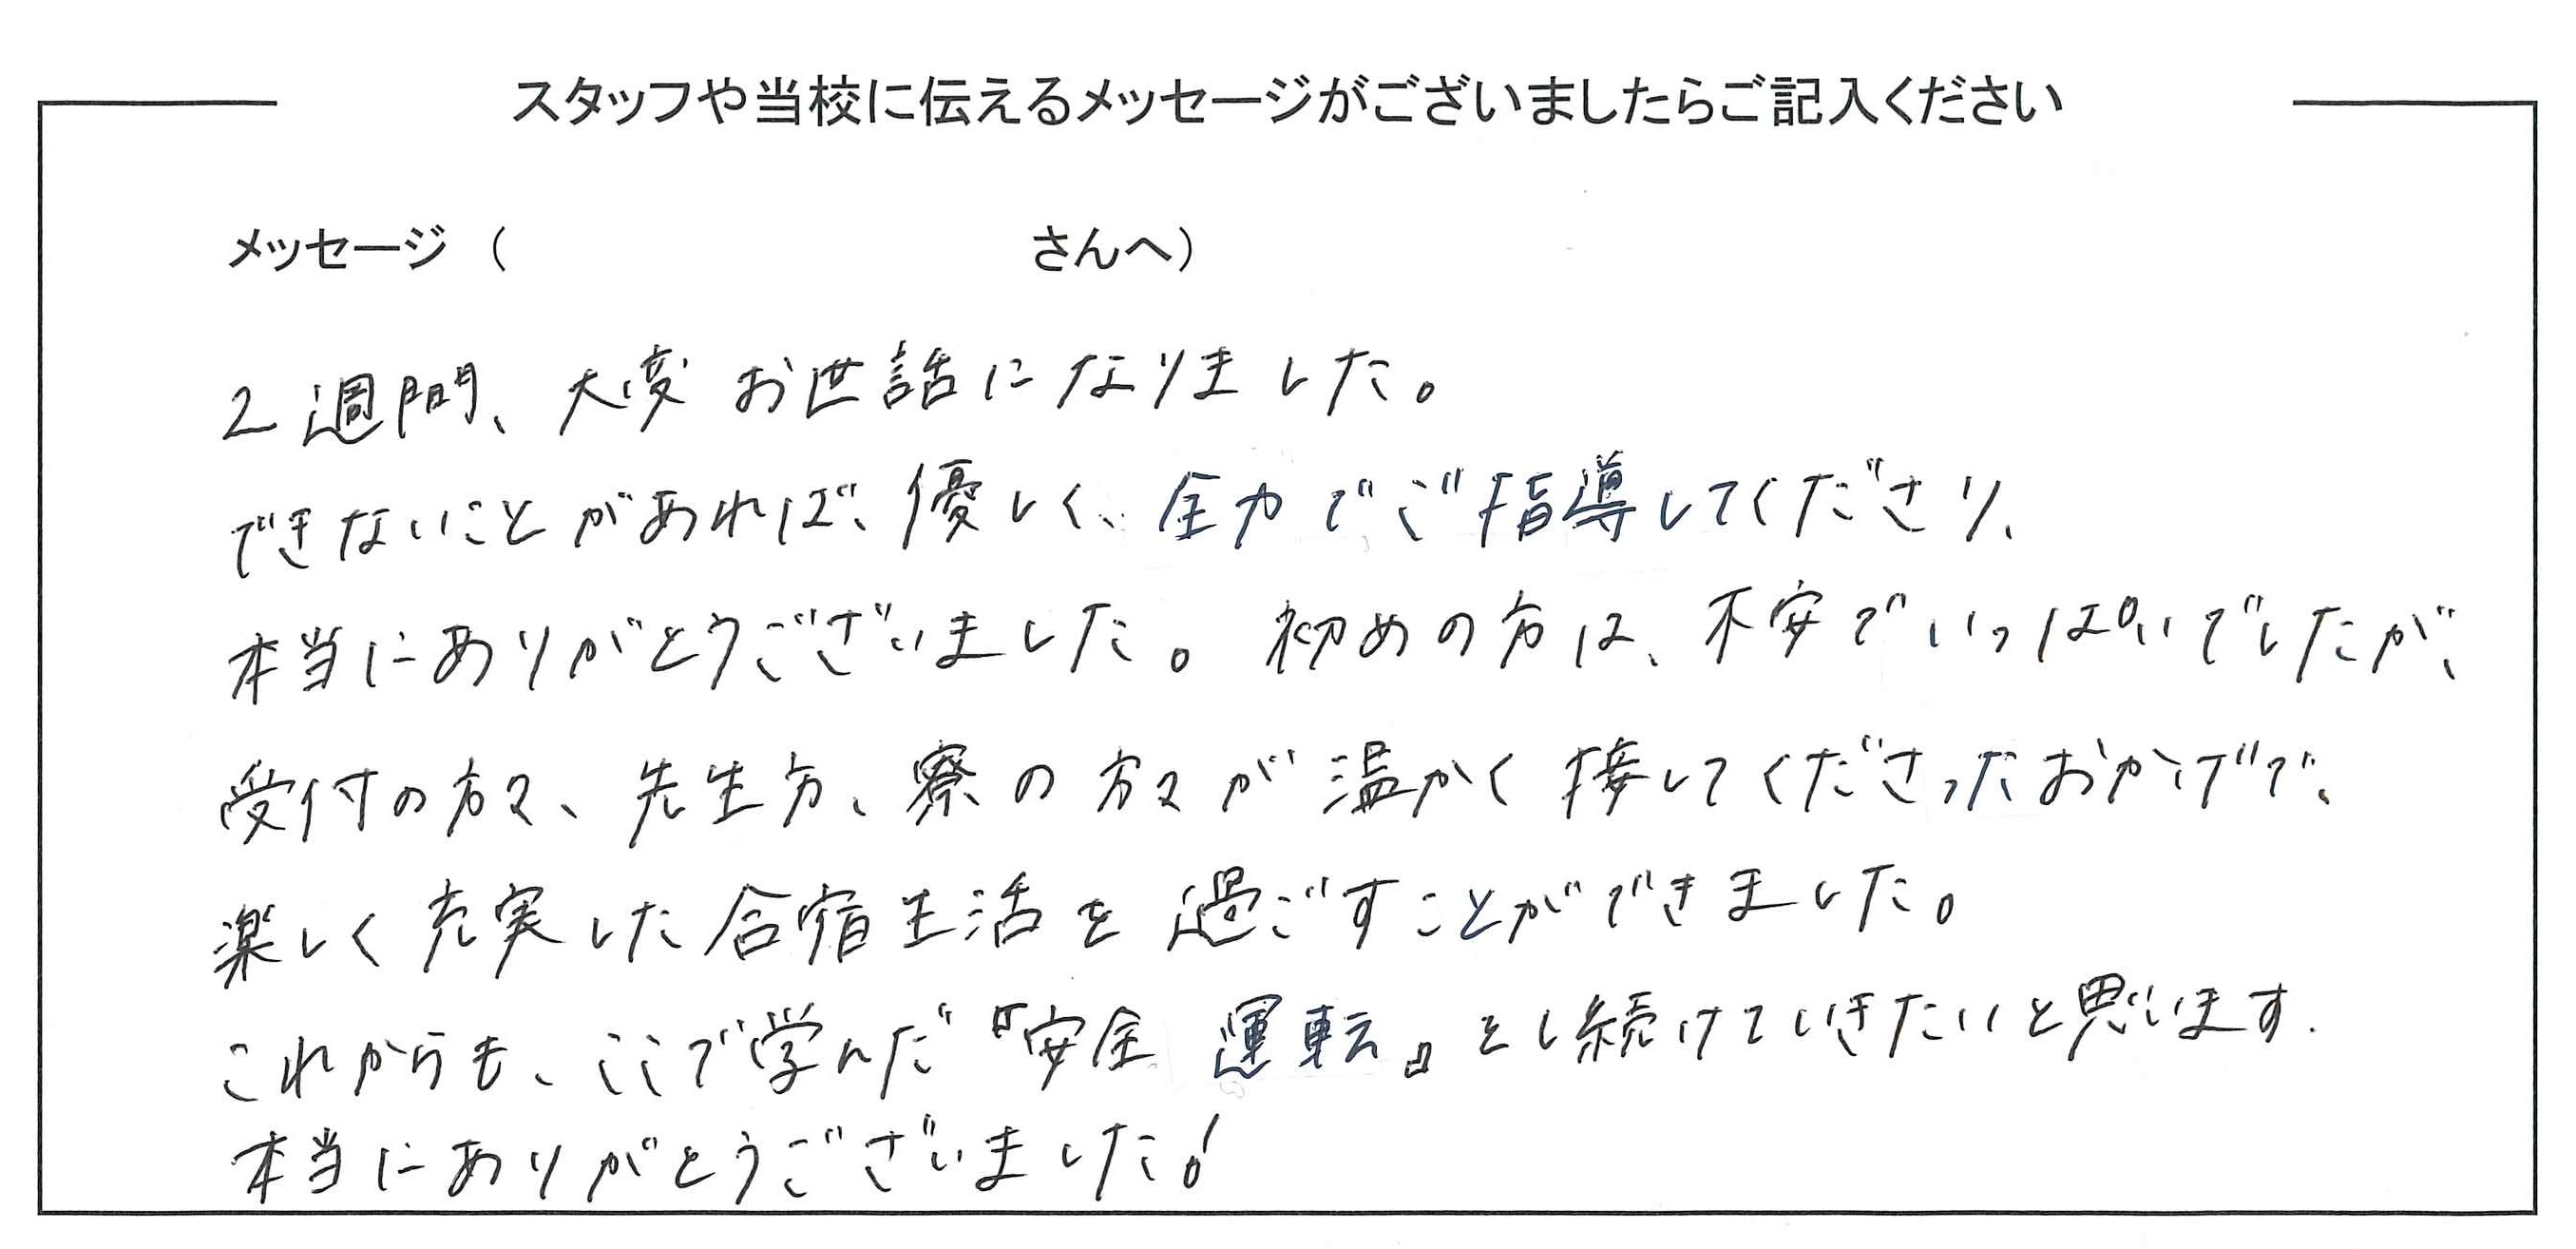 スタッフや当校に伝えるメッセージがございましたらご記入ください
メッセージ（　　　　　　　　　さんへ）
2週間、大変お世話になりました。
できないことがあれば、優しく、全力でご指導してくださり、
本当にありがとうございました。初めの方は、不安でいっぱいでしたが、
受付の方々、先生方、寮の方々が温かく接してくださったおかげで、
楽しく充実した合宿生活を過ごすことができました。
これからも、ここで学んだ『安全運転』をし続けていきたいと思います.
本当にありがとうございました!